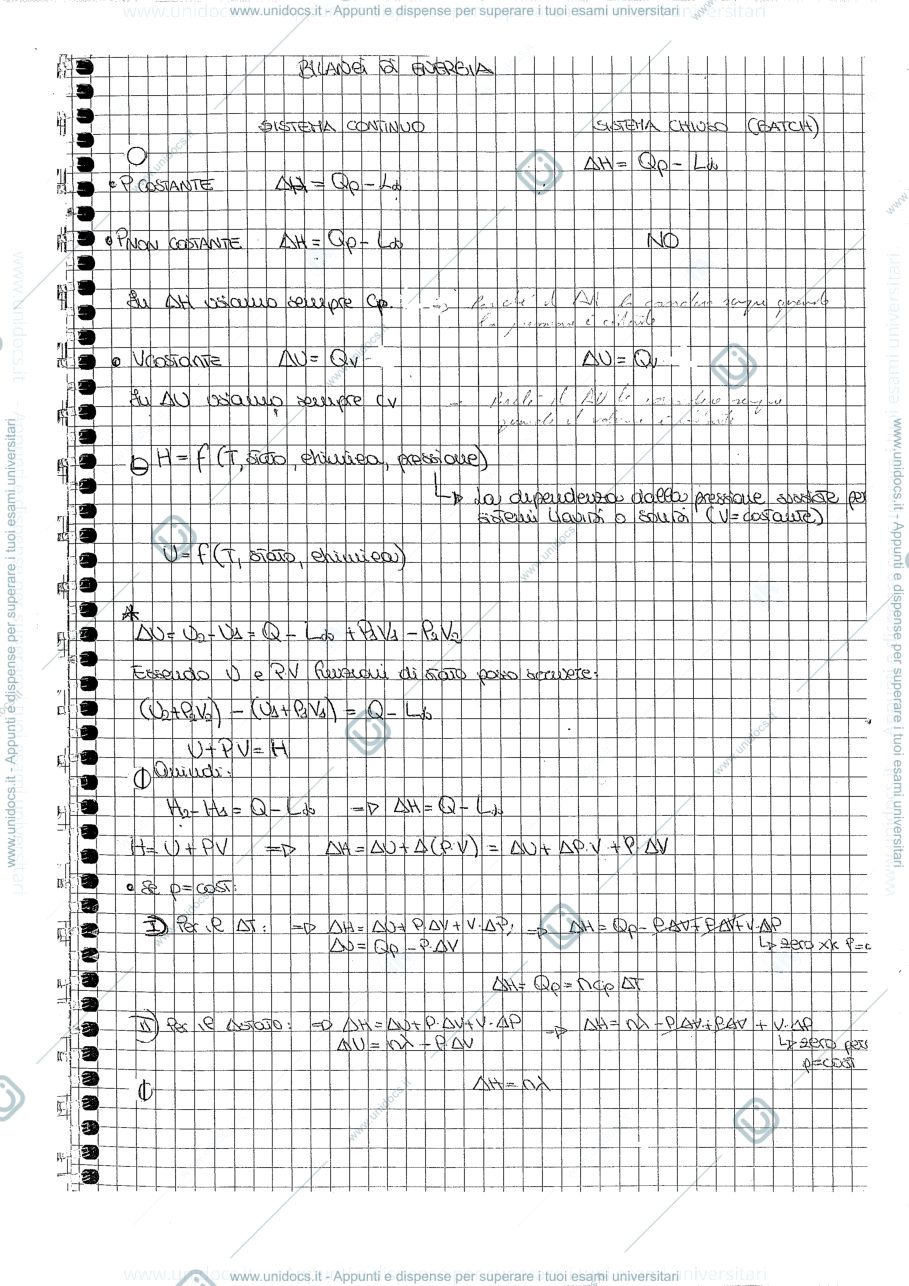 www.unidocs.it - Appunti e dispense per superare i tuoi esami universitari
BILANCI DI ENERGIA
SISTEMA CONTINUO SISTEMA CHIUSO (BATCH)
ΔH = Qp - Ldo
• P COSTANTE ΔH = Qp - Ldo
• P NON COSTANTE ΔH = Qp - Ldo NO
In ΔH usiamo sempre Cp. → Perché il ΔH lo considero sempre quando
la pressione è costante
• V COSTANTE ΔU = Qv ΔU = Qv
In ΔU usiamo sempre Cv → Perché il ΔU lo considero sempre
quando il volume è costante
H = f (T, stato, chimica, pressione)
↳ La dipendenza dalla pressione sussiste per
sistemi liquidi o solidi (V=costante)
U = f (T, stato, chimica)
*
ΔU = U2 - U1 = Q - Ldo + P1V1 - P2V2
Essendo U e PV funzioni di stato posso scrivere:
(U2+P2V2) - (U1+P1V1) = Q - Ldo
U + PV = H
Quindi:
H2 - H1 = Q - Ldo => ΔH = Q - Ldo
H = U + PV => ΔH = ΔU + Δ(P·V) = ΔU + ΔP·V + P·ΔV
• Se p = cost:
I) Per il ΔT: => ΔH = ΔU + P·ΔV + V·ΔP; => ΔH = Qp - P·ΔV + P·ΔV + V·ΔP
ΔU = Qp - P·ΔV ↳ zero xk P=c
ΔH = Qp = ncp ΔT
II) Per il Δstato: => ΔH = ΔU + P·ΔV + V·ΔP => ΔH = nλ - P·ΔV + P·ΔV + V·ΔP
ΔU = nλ - P·ΔV ↳ zero perc
p=cost
ΔH = nλ
www.unidocs.it - Appunti e dispense per superare i tuoi esami universitari